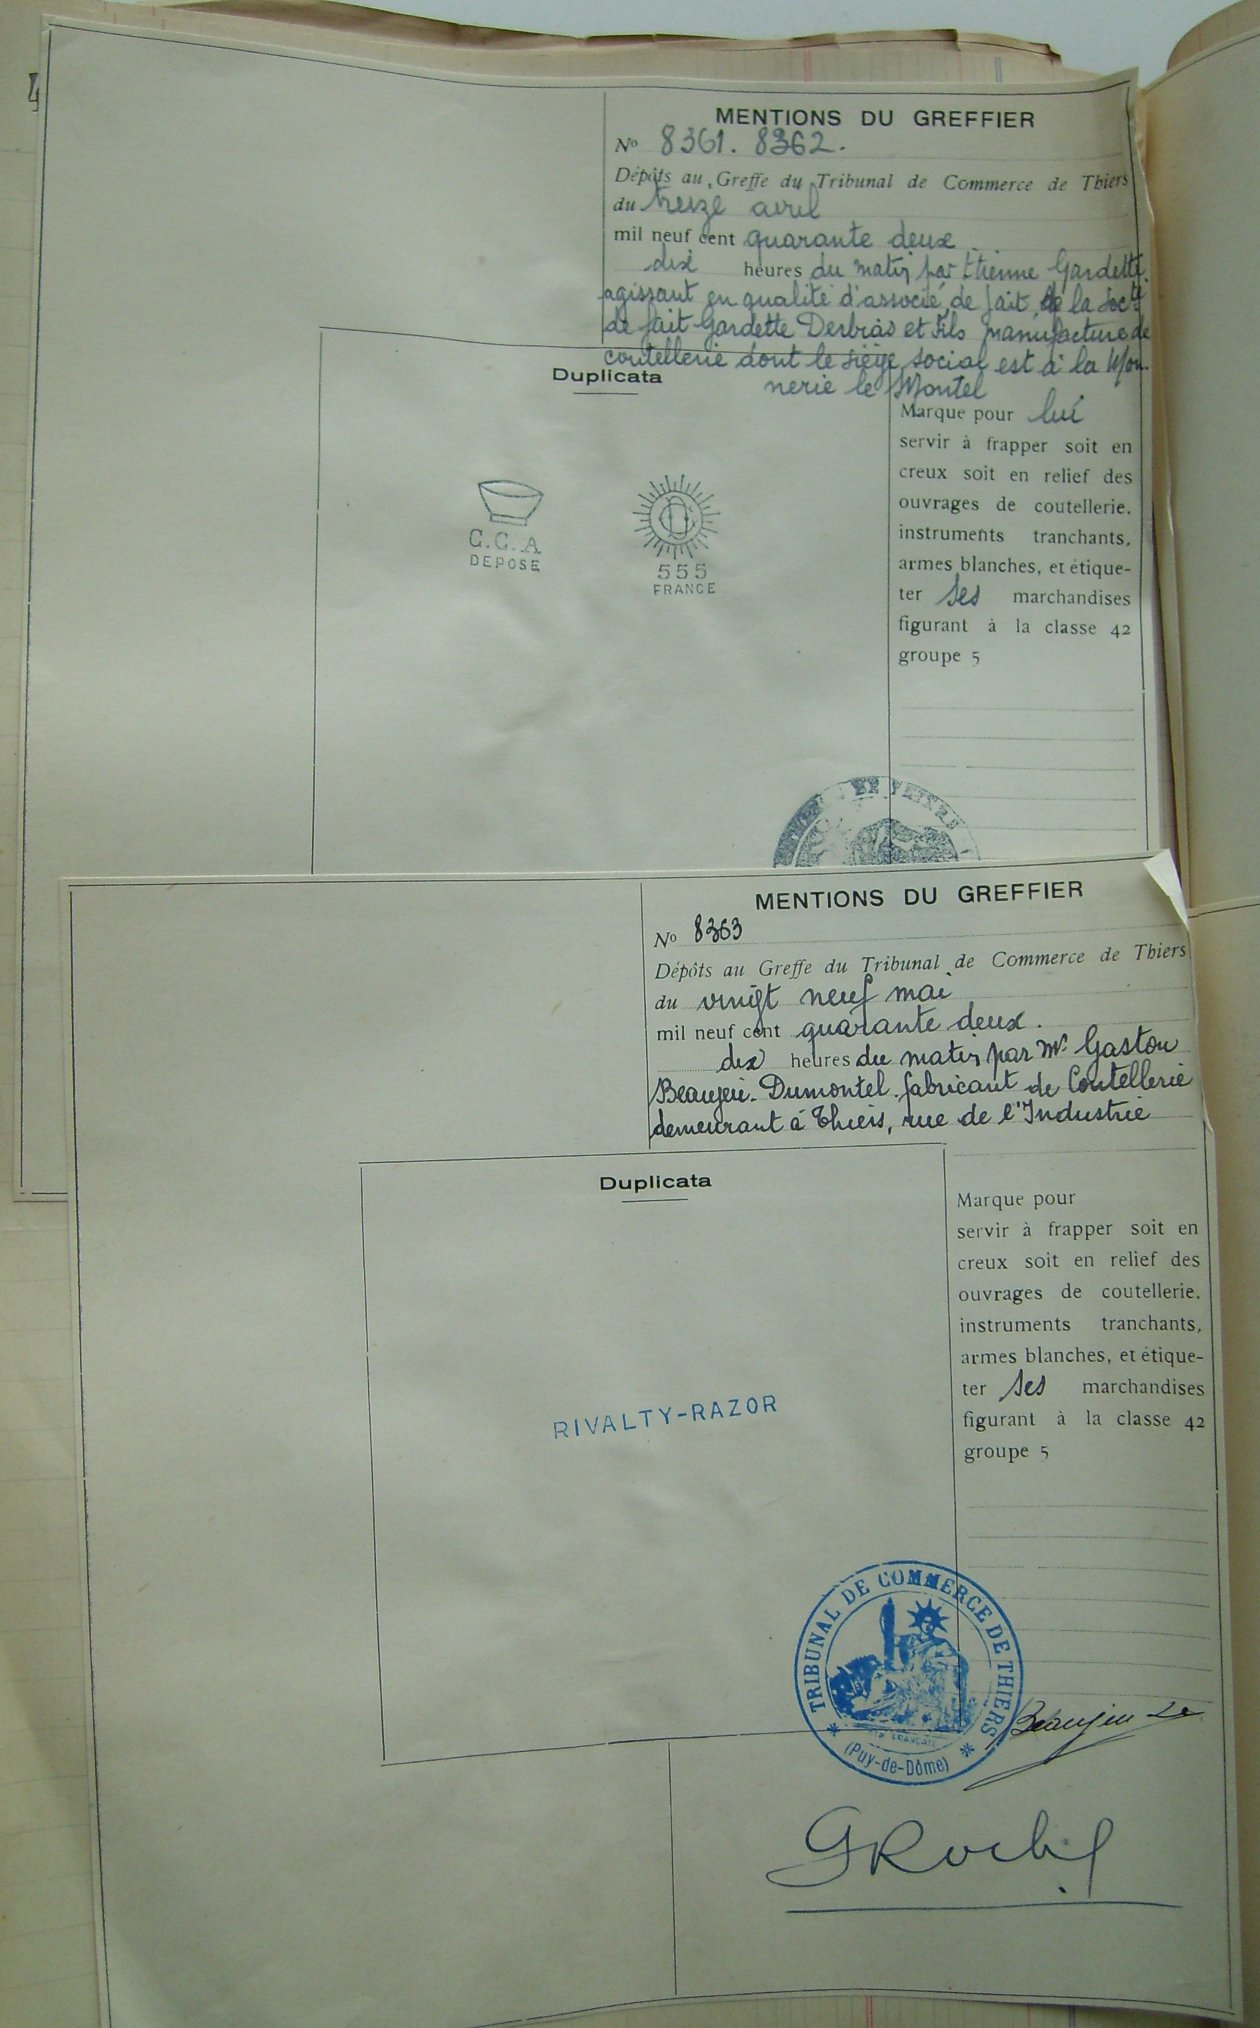 MENTIONS DU GREFFIER
No 8361. 8362.
Dépôts au Greffe du Tribunal de Commerce de Thiers
du treize avril
mil neuf cent quarante deux
dix heures du matin par Etienne Gardette
agissant en qualité d'associé, de fait, de la Socté
de fait Gardette Desbrias et Fils manufacture de
coutellerie dont le siège social est à la Mon-
nerie le Montel
Duplicata
Marque pour lui
servir à frapper soit en
creux soit en relief des
ouvrages de coutellerie.
instruments tranchants,
armes blanches, et étique-
ter ses marchandises
figurant à la classe 42
groupe 5
C.C.A
DEPOSE
555
FRANCE
MENTIONS DU GREFFIER
No 8363
Dépôts au Greffe du Tribunal de Commerce de Thiers
du vingt neuf mai
mil neuf cent quarante deux.
dix heures du matin par Mr Gaston
Beaujeu-Dumontel fabricant de Coutellerie
demeurant à Thiers, rue de l'Industrie
Duplicata
Marque pour
servir à frapper soit en
creux soit en relief des
ouvrages de coutellerie.
instruments tranchants,
armes blanches, et étique-
ter ses marchandises
figurant à la classe 42
groupe 5
RIVALTY-RAZOR
TRIBUNAL DE COMMERCE DE THIERS
(Puy-de-Dôme)
Beaujeu